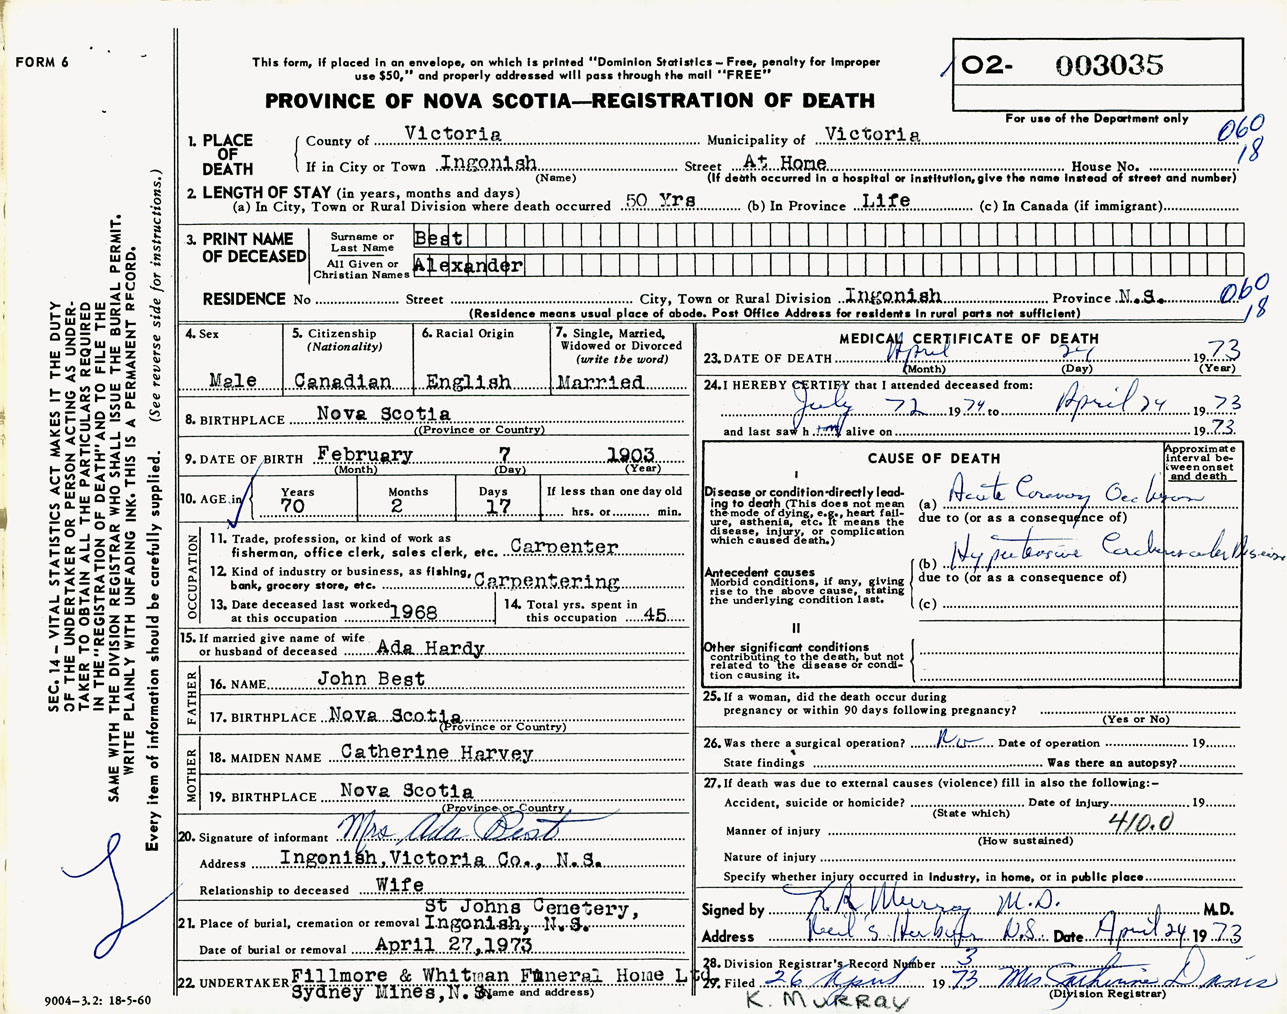 FORM 6
This form, if placed in an envelope, on which is printed "Dominion Statistics – Free, penalty for improper
use $50," and properly addressed will pass through the mail "FREE"
PROVINCE OF NOVA SCOTIA—REGISTRATION OF DEATH
02- 003035
For use of the Department only
060
18
1. PLACE OF DEATH
County of Victoria Municipality of Victoria
If in City or Town Ingonish Street At Home House No.
(Name) (If death occurred in a hospital or institution, give the name instead of street and number)
2. LENGTH OF STAY (in years, months and days)
(a) In City, Town or Rural Division where death occurred 50 Yrs (b) In Province Life (c) In Canada (if immigrant)
3. PRINT NAME OF DECEASED
Surname or Last Name Best
All Given or Christian Names Alexander
RESIDENCE No Street City, Town or Rural Division Ingonish Province N.S.
060
18
(Residence means usual place of abode. Post Office Address for residents in rural parts not sufficient)
4. Sex
Male
5. Citizenship
(Nationality)
Canadian
6. Racial Origin
English
7. Single, Married,
Widowed or Divorced
(write the word)
Married
8. BIRTHPLACE Nova Scotia
((Province or Country)
9. DATE OF BIRTH February 7 1903
(Month) (Day) (Year)
10. AGE in
Years Months Days If less than one day old
70 2 17 hrs. or min.
OCCUPATION
11. Trade, profession, or kind of work as
fisherman, office clerk, sales clerk, etc. Carpenter
12. Kind of industry or business, as fishing,
bank, grocery store, etc. Carpentering
13. Date deceased last worked
at this occupation 1968
14. Total yrs. spent in
this occupation 45
15. If married give name of wife
or husband of deceased Ada Hardy
FATHER
16. NAME John Best
17. BIRTHPLACE Nova Scotia
(Province or Country)
MOTHER
18. MAIDEN NAME Catherine Harvey
19. BIRTHPLACE Nova Scotia
(Province or Country
20. Signature of informant Mrs. Ada Best
Address Ingonish, Victoria Co., N.S.
Relationship to deceased Wife
St Johns Cemetery,
21. Place of burial, cremation or removal Ingonish, N.S.
Date of burial or removal April 27,1973
22. UNDERTAKER Fillmore & Whitman Funeral Home Ltd.
Sydney Mines, N.S. (Name and address)
MEDICAL CERTIFICATE OF DEATH
23. DATE OF DEATH April 24 1973
(Month) (Day) (Year)
24. I HEREBY CERTIFY that I attended deceased from:
July 72 1974 to April 24 1973
and last saw h im alive on 1973
CAUSE OF DEATH
Approximate
interval be-
tween onset
and death
I
Disease or condition directly lead-
ing to death (This does not mean
the mode of dying, e.g., heart fail-
ure, asthenia, etc. It means the
disease, injury, or complication
which caused death.)
(a) Acute Coronary Occlusion
due to (or as a consequence of)
Antecedent causes
Morbid conditions, if any, giving
rise to the above cause, stating
the underlying condition last.
(b) Hypertensive Cerebrovascular Disease
due to (or as a consequence of)
(c)
II
Other significant conditions
contributing to the death, but not
related to the disease or condi-
tion causing it.
25. If a woman, did the death occur during
pregnancy or within 90 days following pregnancy?
(Yes or No)
26. Was there a surgical operation? No Date of operation 19
State findings Was there an autopsy?
27. If death was due to external causes (violence) fill in also the following:–
Accident, suicide or homicide? Date of injury 19
(State which)
410.0
Manner of injury
(How sustained)
Nature of injury
Specify whether injury occurred in industry, in home, or in public place
Signed by K R Murray M.D. M.D.
Address Neil's Harbour N.S. Date April 24 1973
28. Division Registrar's Record Number 3
29. Filed 26 April 1973 Mrs Catherine Davis
(Division Registrar)
K. MURRAY
SEC. 14 – VITAL STATISTICS ACT MAKES IT THE DUTY
OF THE UNDERTAKER OR PERSON ACTING AS UNDER-
TAKER TO OBTAIN ALL THE PARTICULARS REQUIRED
IN THE "REGISTRATION OF DEATH" AND TO FILE THE
SAME WITH THE DIVISION REGISTRAR WHO SHALL ISSUE THE BURIAL PERMIT.
WRITE PLAINLY WITH UNFADING INK. THIS IS A PERMANENT RECORD.
Every item of information should be carefully supplied. (See reverse side for instructions.)
9004-3.2: 18-5-60